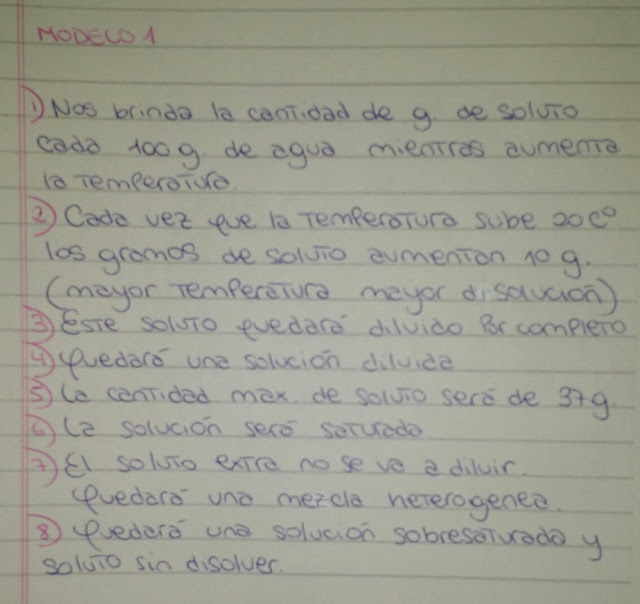 MODELO 1
1) Nos brinda la cantidad de g. de soluto
cada 100 g. de agua mientras aumenta
la temperatura.
2) Cada vez que la temperatura sube 20 C°
los gramos de soluto aumentan 10 g.
(mayor temperatura mayor disolución)
3) Este soluto quedará diluido por completo
4) Quedará una solución diluida
5) La cantidad max. de soluto será de 37g.
6) La solución será saturada
7) El soluto extra no se va a diluir.
Quedará una mezcla heterogenea.
8) Quedará una solución sobresaturada y
soluto sin disolver.